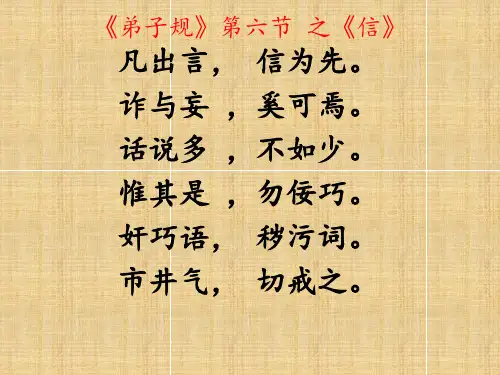 《弟子规》第六节 之《信》
凡出言， 信为先。
诈与妄 ，奚可焉。
话说多 ，不如少。
惟其是 ，勿佞巧。
奸巧语， 秽污词。
市井气， 切戒之。